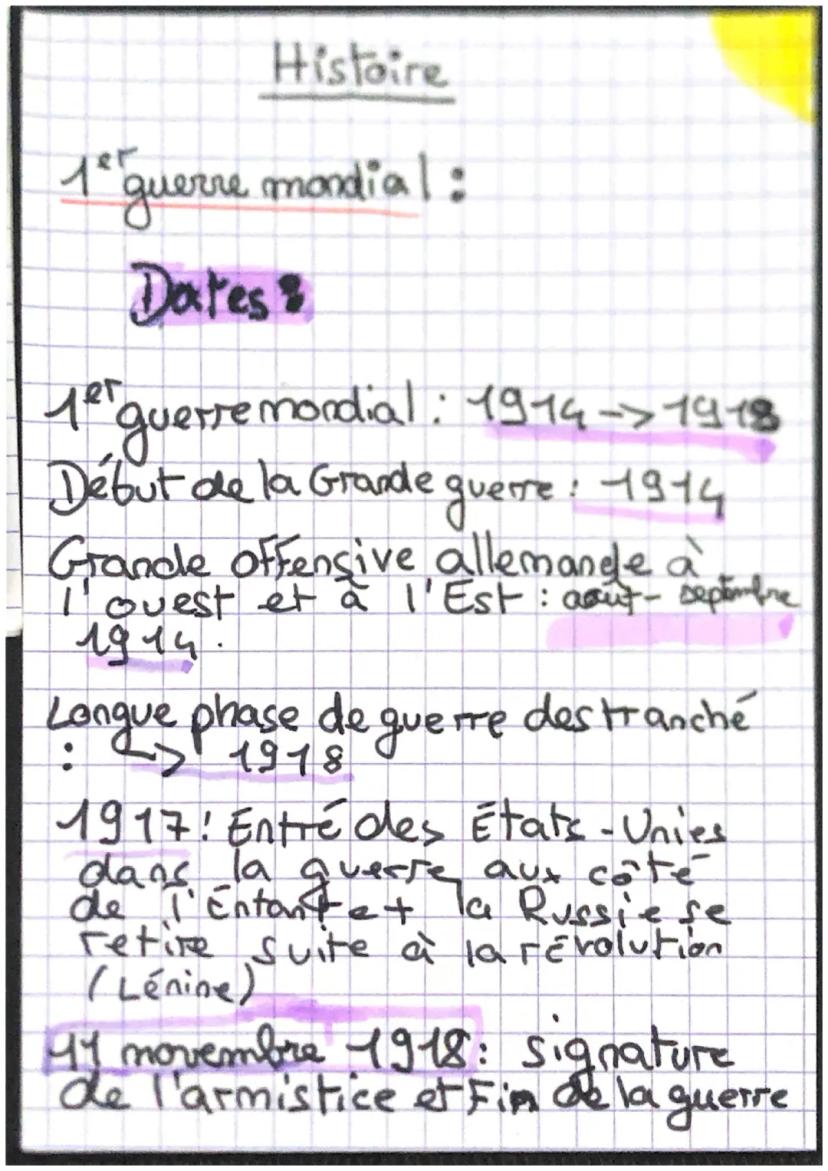 Histoire
1er guerre mondial :
Dates :
1er guerre mondial : 1914 -> 1918
Début de la Grande guerre : 1914
Grande offensive allemande à
l'ouest et à l'Est : août - septembre
1914.
Longue phase de guerre des tranché
: ↳> 1918
1917 : Entré des États - Unies
dans la guerre aux côté
de l'Entante et la Russie se
retire suite à la révolution
(Lénine)
11 novembre 1918 : signature
de l'armistice et Fin de la guerre